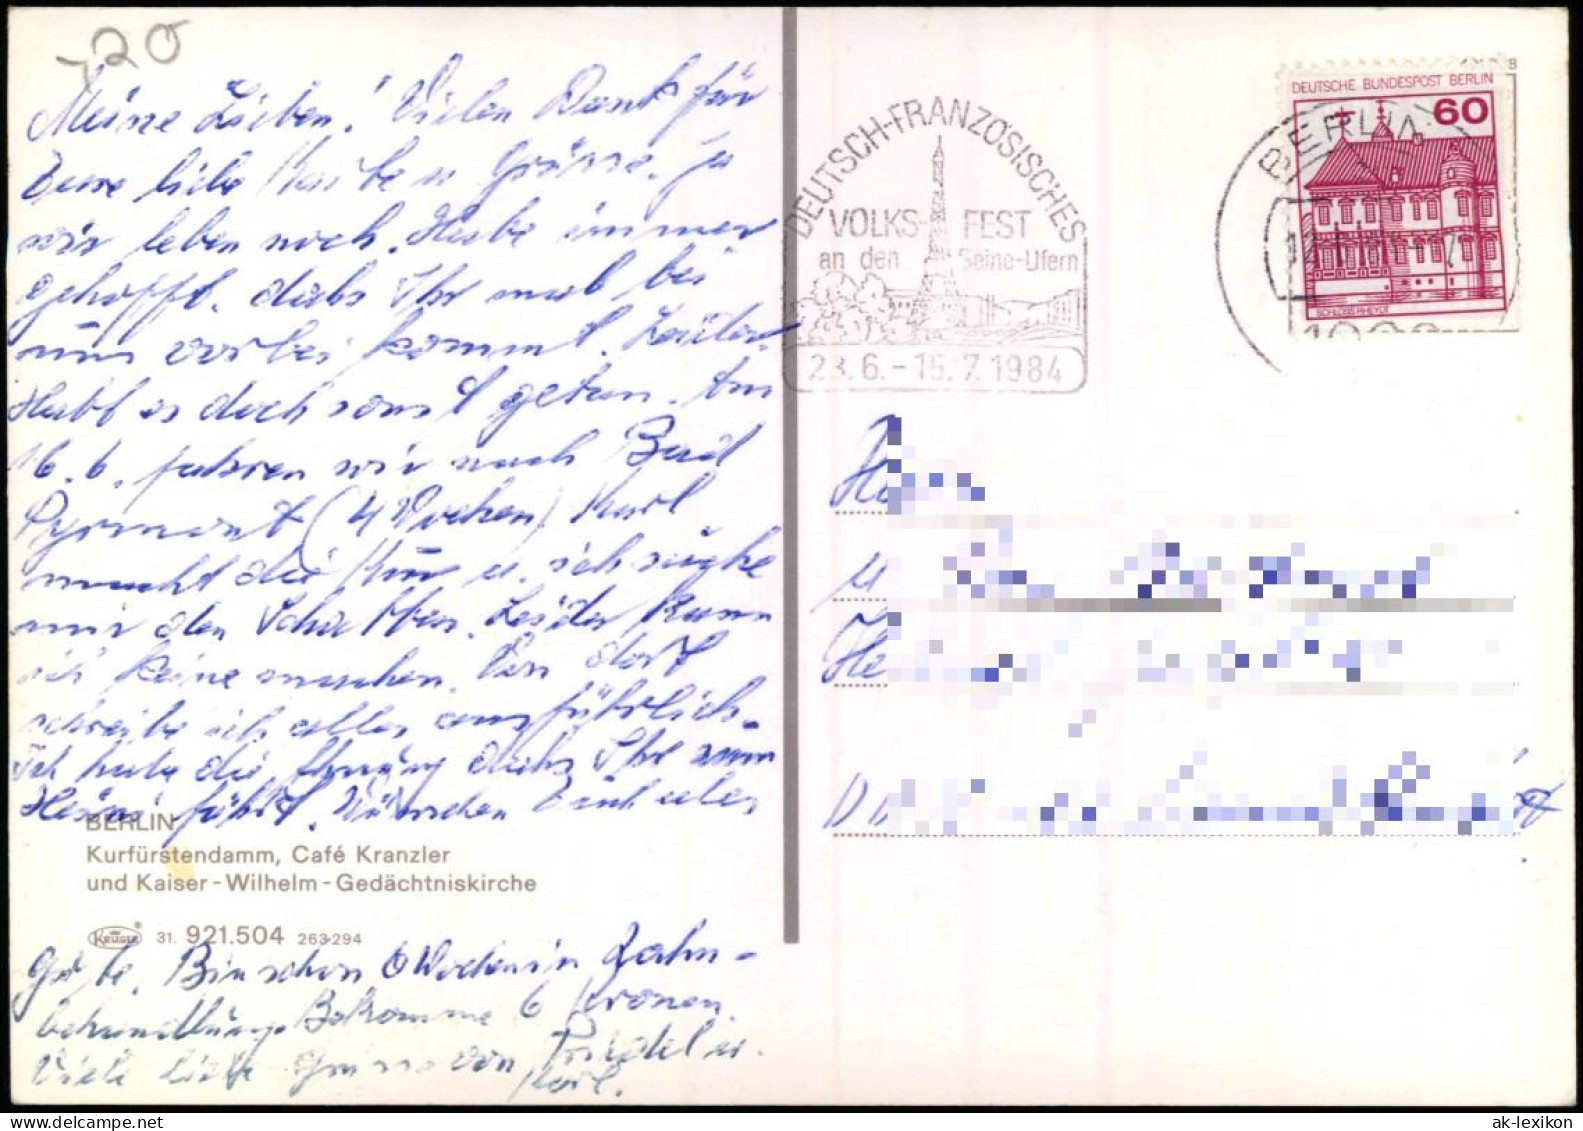 -20
Meine Lieben! Vielen Dank für
Eure liebe Karte u Grüsse. Ja
wir leben noch. Habe immer
gehofft, dahs Ihr mal bei
uns vorbei kommt. Leider
Habt es doch sonst getan. Am
16.6. fahren wir nach Bad
Pyrmont (4 Wochen) Karl
macht die Kur u. ich suche
mir den Schatten. Leider kann
ich keine machen. Von dort
schreibe ich alles ausführlich.
Ich habe die Ahnung dahs Ihr zum
Heini fährt. Wünschen Euch alles
BERLIN
Kurfürstendamm, Café Kranzler
und Kaiser-Wilhelm-Gedächtniskirche
KRÜGER 31. 921.504 263-294
Gute. Bin schon 6 Wochen in Zahn-
behandlung. Bekomme 6 Kronen.
Viele liebe Grüsse von Friedel u.
Karl.
DEUTSCH-FRANZÖSISCHES
VOLKS-FEST
an den Seine-Ufern
23.6.-15.7.1984
DEUTSCHE BUNDESPOST BERLIN
60
SCHLOSS RHEYDT
BERLIN
u
He
ak-lexikon